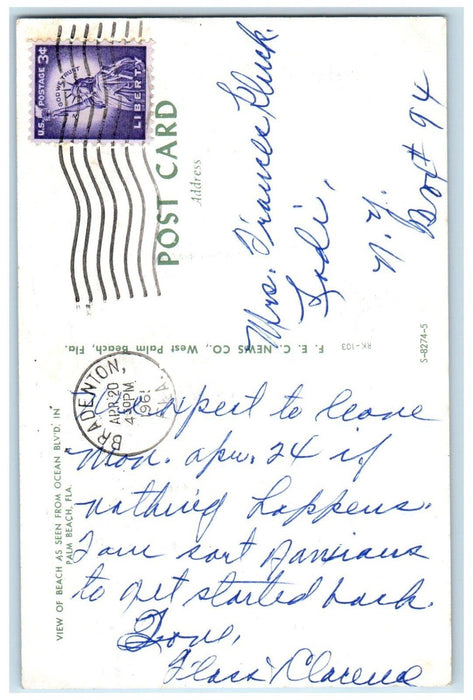 U.S. POSTAGE 3¢
IN GOD WE TRUST
LIBERTY
POST CARD
Address
Mrs. Frances Kluck.
Lodi,
N.Y.
Box # 94
BRADENTON,
APR 20
4 30 PM
1961
FLA.
F. E. C. NEWS CO., West Palm Beach, Fla.
RK-103
S-8274-5
VIEW OF BEACH AS SEEN FROM OCEAN BLV'D. IN
PALM BEACH, FLA.
expect to leave
Mon. Apr. 24 if
nothing happens.
I am sort of anxious
to get started back.
Love,
Floss & Clarence